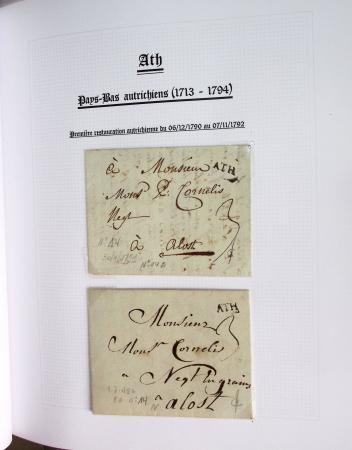 Ath
Pays-Bas autrichiens (1713 - 1794)
Première restauration autrichienne du 06/12/1790 au 07/11/1792
à Monsieur
ATH
Mons. P. Cornelis
Negt
3
à alost
N° A4
ATH
Monsieur
3
Monsr Cornelis
a Negt En grains
a alost
N° A4